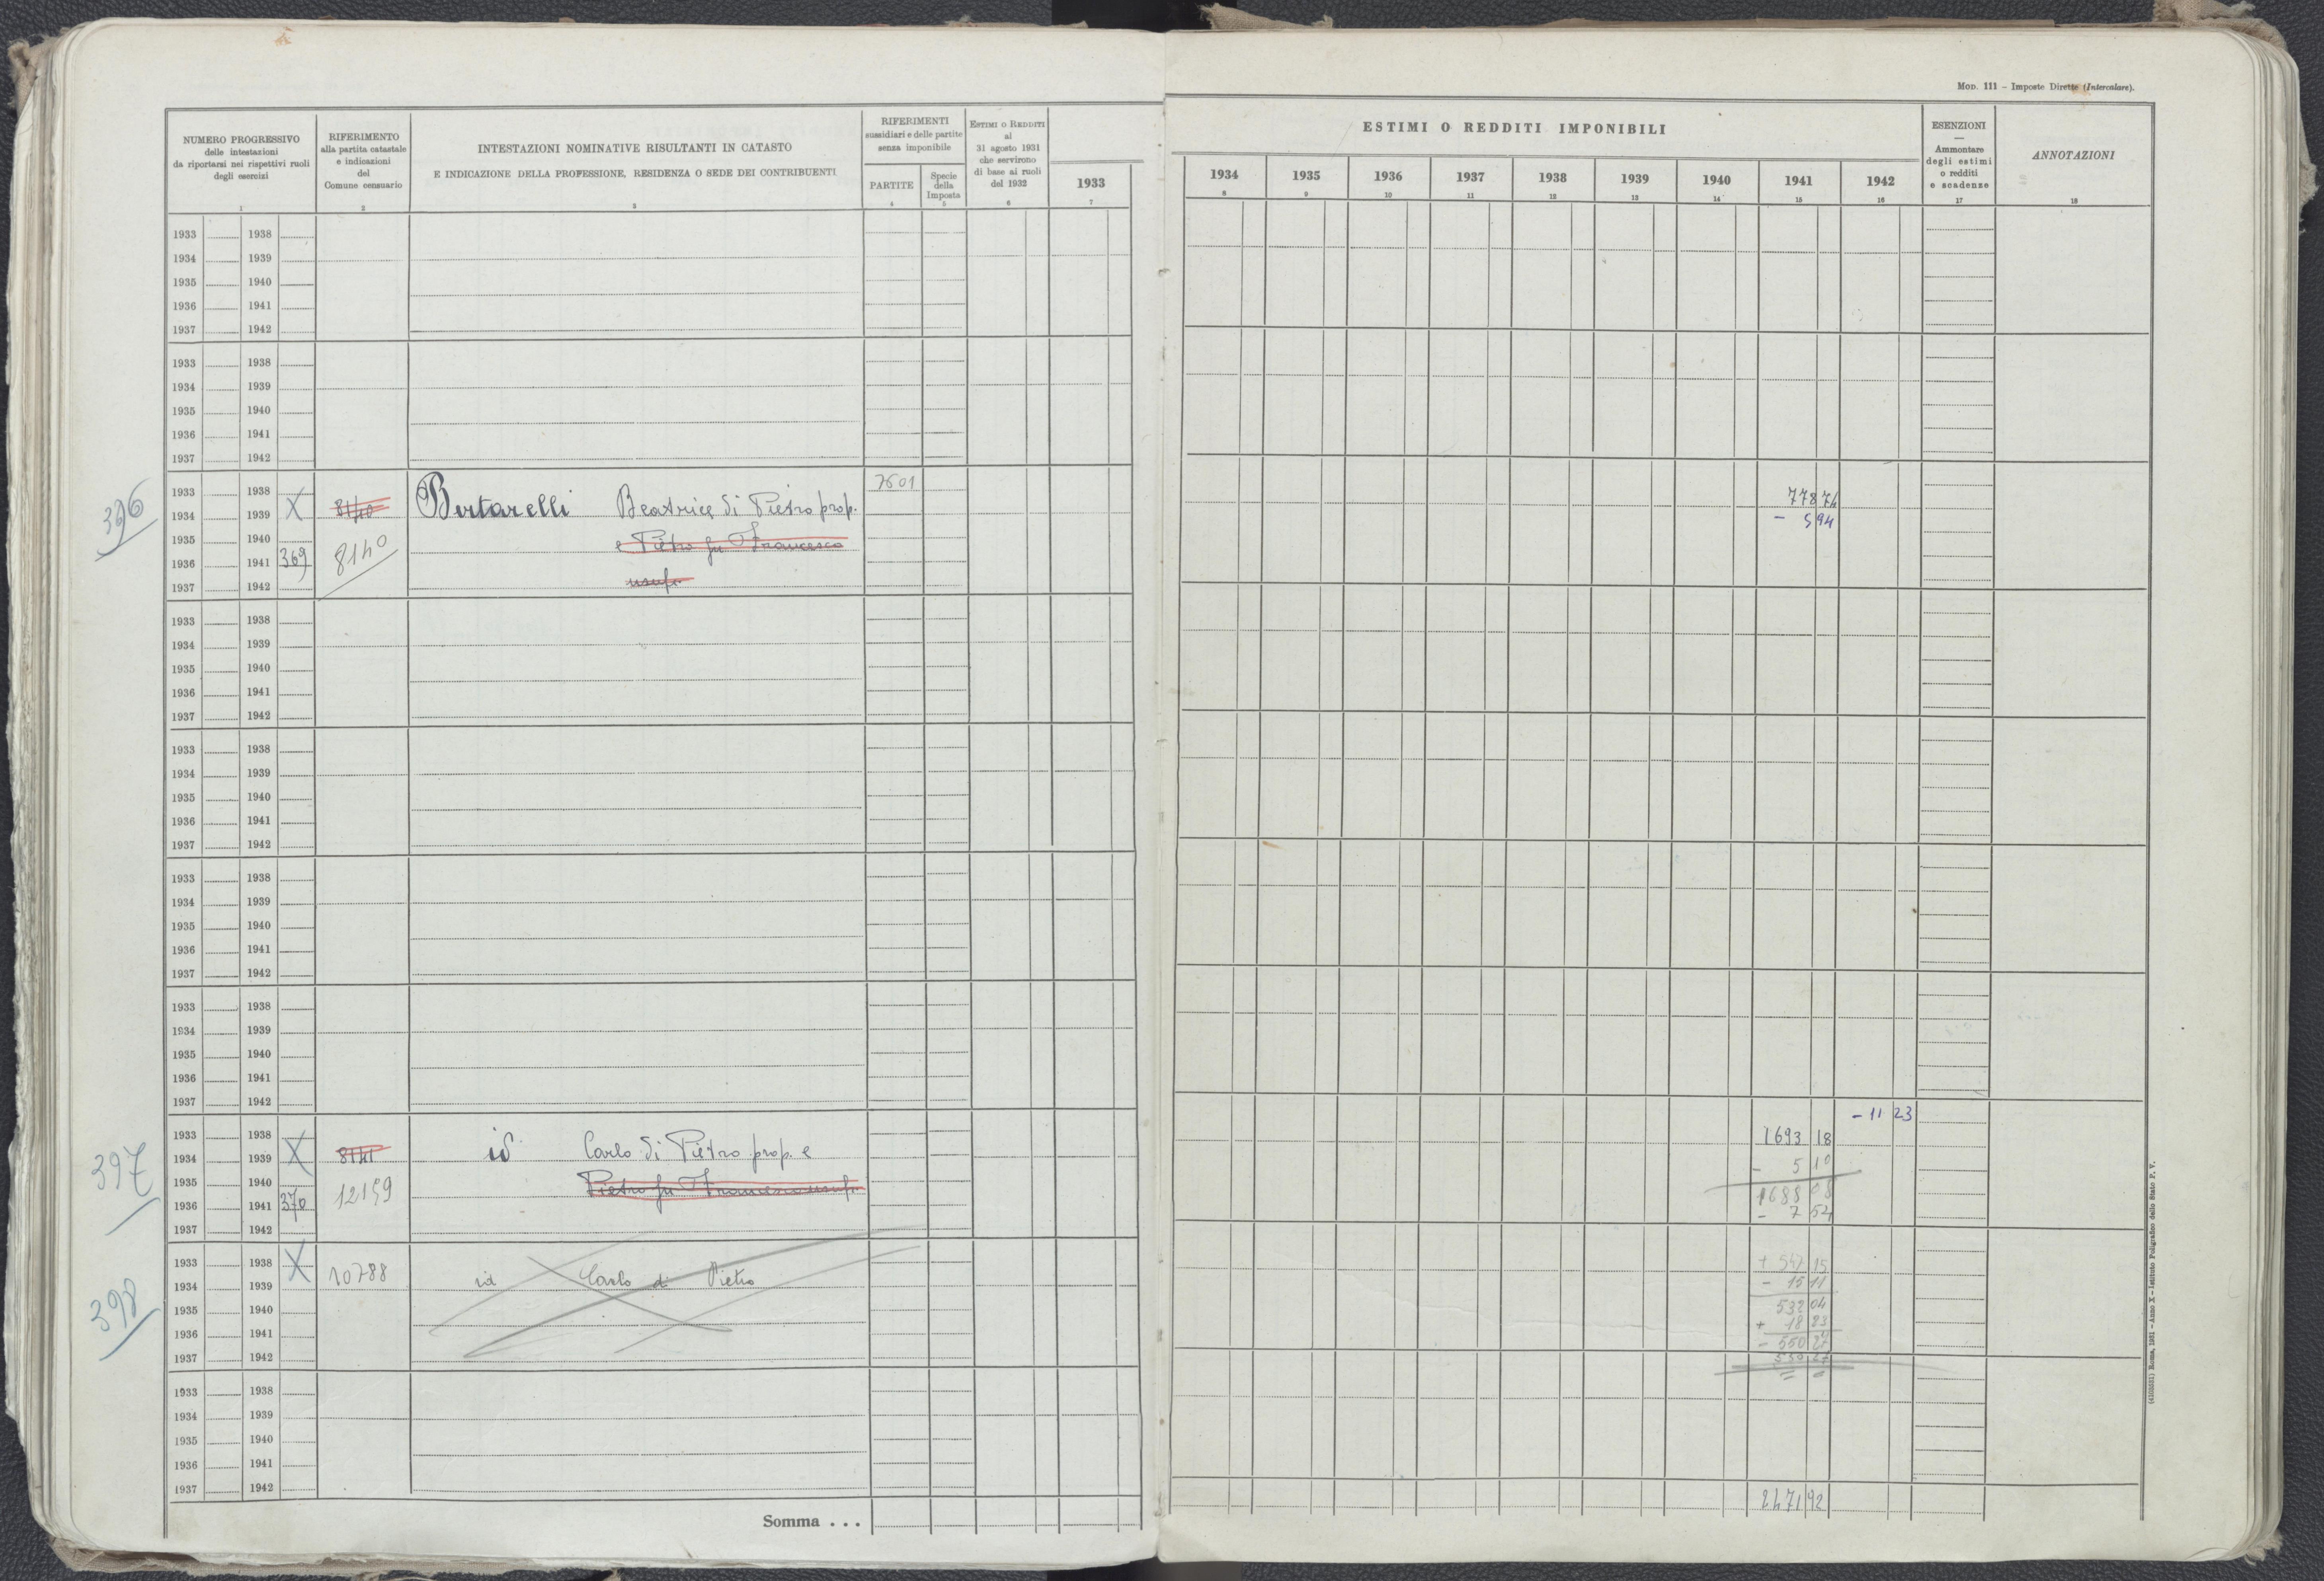 Mod. 111 – Imposte Dirette (Intercalare).
NUMERO PROGRESSIVO
delle intestazioni
da riportarsi nei rispettivi ruoli
degli esercizi
1
RIFERIMENTO
alla partita catastale
e indicazioni
del
Comune censuario
2
INTESTAZIONI NOMINATIVE RISULTANTI IN CATASTO
E INDICAZIONE DELLA PROFESSIONE, RESIDENZA O SEDE DEI CONTRIBUENTI
3
RIFERIMENTI
sussidiari e delle partite
senza imponibile
PARTITE
4
Specie
della
Imposta
5
Estimi o Redditi
al
31 agosto 1931
che servirono
di base ai ruoli
del 1932
6
1933
7
ESTIMI O REDDITI IMPONIBILI
1934 1935 1936 1937 1938 1939 1940 1941 1942
8 9 10 11 12 13 14 15 16
ESENZIONI
—
Ammontare
degli estimi
o redditi
e scadenze
17
ANNOTAZIONI
18
1933 1938
1934 1939
1935 1940
1936 1941
1937 1942
1933 1938
1934 1939
1935 1940
1936 1941
1937 1942
396
1933 1938 X 7601
1934 1939 8140 Bertarelli Beatrice di Pietro prop. 778 74
- 5 94
1935 1940 e Pietro fu Francesco
1936 1941 369 8140
1937 1942 usufr.
1933 1938
1934 1939
1935 1940
1936 1941
1937 1942
1933 1938
1934 1939
1935 1940
1936 1941
1937 1942
1933 1938
1934 1939
1935 1940
1936 1941
1937 1942
1933 1938
1934 1939
1935 1940
1936 1941
1937 1942
- 11 23
397
1933 1938 X 1693 18
1934 1939 8141 id Carlo di Pietro prop. e - 5 10
1935 1940 12159 Pietro fu Francesco usufr. 1688 08
1936 1941 370 - 7 54
1937 1942
398
1933 1938 X 10788 + 547 15
1934 1939 id Carlo di Pietro - 15 11
1935 1940 532 04
1936 1941 + 18 23
1937 1942 - 550 27
550 27
1933 1938
1934 1939
1935 1940
1936 1941
1937 1942
Somma . . . 2471 92
(4103531) Roma, 1931 – Anno X – Istituto Poligrafico dello Stato P. V.